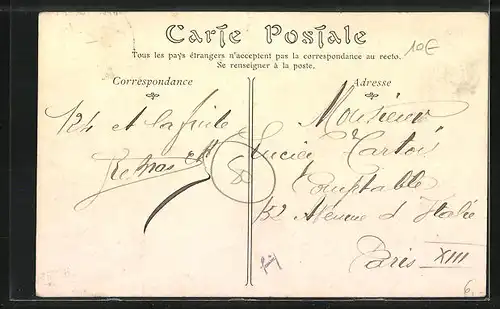 Carte Postale
10€
Tous les pays étrangers n'acceptent pas la correspondance au recto.
Se renseigner à la poste.
Correspondance
124 et la
Adresse
Monsieur
Lucien
Comptable
152 Avenue d'Italie
Paris XIII
6.-